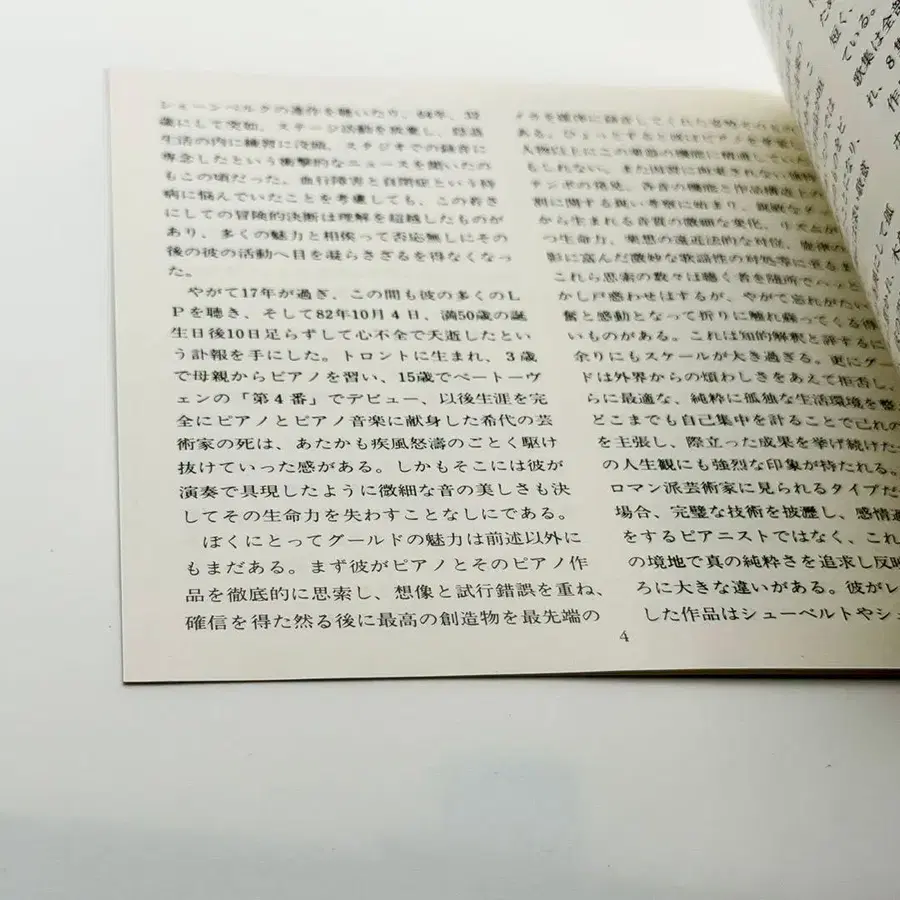 シェーンベルクの連作を聴いたり、64年、32
歳にして突如、ステージ活動を放棄し、隠遁
生活の内に練習に没頭、スタジオでの録音に
専念したという衝撃的なニュースを聞いたの
もこの頃だった。血行障害と自閉症という持
病に悩んでいたことを考慮しても、この若さ
にしての冒険的決断は理解を超越したものが
あり、多くの魅力と相俟って否応無しにその
後の彼の活動へ目を凝らさざるを得なくなっ
た。
やがて17年が過ぎ、この間も彼の多くのL
Pを聴き、そして82年10月4日、満50歳の誕
生日後10日足らずして心不全で夭逝したとい
う訃報を手にした。トロントに生まれ、3歳
で母親からピアノを習い、15歳でベートーヴ
ェンの「第4番」でデビュー、以後生涯を完
全にピアノとピアノ音楽に献身した希代の芸
術家の死は、あたかも疾風怒濤のごとく駆け
抜けていった感がある。しかもそこには彼が
演奏で具現したように微細な音の美しさも決
してその生命力を失わすことなしにである。
ぼくにとってグールドの魅力は前述以外に
もまだある。まず彼がピアノとそのピアノ作
品を徹底的に思索し、想像と試行錯誤を重ね、
確信を得た然る後に最高の創造物を最先端の
ある。ひょっとすると彼はピアノを
人物以上にこの楽器の機能に精通してい
もしれない。また因習に拘束されない強
テンポの発見、各音の機能と作品構造上
割に関する鋭い考察に始まり、鋭敏なタッ
から生まれる音質の微細な変化、リズムが
つ生命力、楽想の遠近法的な対位、旋律の
影に富んだ微妙な歌謡性の対処等に至るま
これら思索の数々は聴く者を随所でハッと
かし戸惑わせはするが、やがて忘れがたい
奮と感動となって折りに触れ蘇ってくる得
いものがある。これは知的解釈と評するに
余りにもスケールが大き過ぎる。更にグー
ドは外界からの煩わしさをあえて拒否し、
らに最適な、純粋に孤独な生活環境を整
どこまでも自己集中を計ることで己れの
を主張し、際立った成果を挙げ続けた
の人生観にも強烈な印象が持たれる。
ロマン派芸術家に見られるタイプだ
場合、完璧な技術を披瀝し、感情過
をするピアニストではなく、これ
の境地で真の純粋さを追求し反映
ろに大きな違いがある。彼がレ
した作品はシューベルトやシュ
4
短く、
ている。
歌集は全部
8集
れ、
作